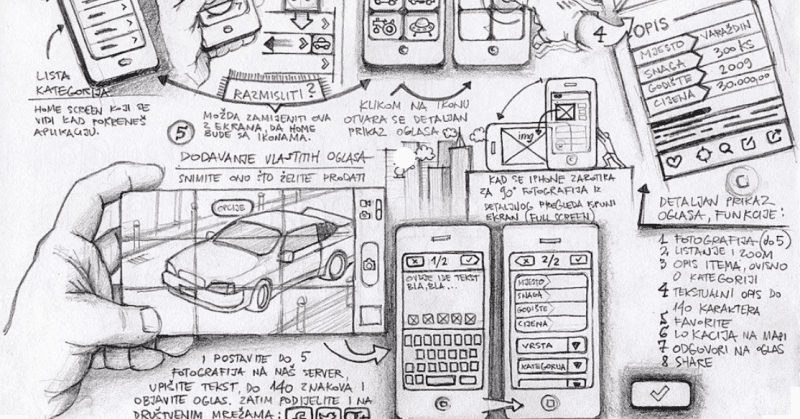 LISTA
KATEGORIJA
HOME SCREEN KOJI SE
VIDI KAD POKRENEŠ
APLIKACIJU.
RAZMISLITI?
5
MOŽDA ZAMIJENITI OVA
2 EKRANA, DA HOME
BUDE SA IKONAMA.
KLIKOM NA IKONU
OTVARA SE DETALJAN
PRIKAZ OGLASA
4
OPIS
MJESTO VARAŽDIN
SNAGA 300 KS
GODIŠTE 2009
CIJENA 30.000,00
DODAVANJE VLASTITIH OGLASA
SNIMITE ONO ŠTO ŽELITE PRODATI
OPCIJE
img
KAD SE IPHONE ZAROTIRA
ZA 90° FOTOGRAFIJA IZ
DETALJNOG PREGLEDA ISPUNI
EKRAN (FULL SCREEN)
DETALJAN PRIKAZ
OGLASA, FUNKCIJE:
1 FOTOGRAFIJA (do 5)
2 LISTANJE I ZOOM
3 OPIS ITEMA, OVISNO
O KATEGORIJI
4 TEKSTUALNI OPIS DO
140 KARAKTERA
5 FAVORITE
6 LOKACIJA NA MAPI
7 ODGOVORI NA OGLAS
8 SHARE
1/2
OVDJE IDE TEKST
BLA, BLA...
2/2
MJESTO
SNAGA
GODIŠTE
CIJENA
VRSTA
KATEGORIJA
I POSTAVITE DO 5
FOTOGRAFIJA NA NAŠ SERVER,
UPIŠITE TEKST, DO 140 ZNAKOVA I
OBJAVITE OGLAS. ZATIM PODIJELITE I NA
DRUŠTVENIM MREŽAMA: